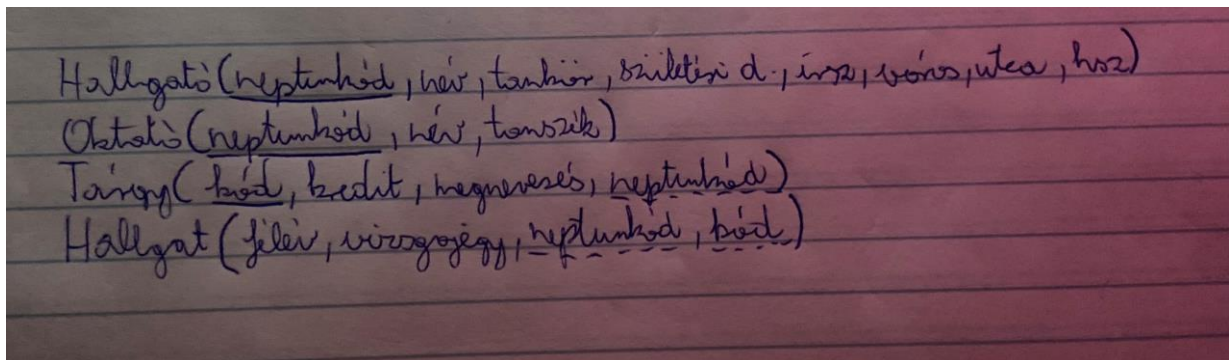 Hallgató(neptunkód, név, tankör, születési d., irsz, város, utca, hsz)
Oktató(neptunkód, név, tanszék)
Tárgy(kód, kredit, megnevezés, neptunkód)
Hallgat(félév, vizsgajegy, neptunkód, kód)